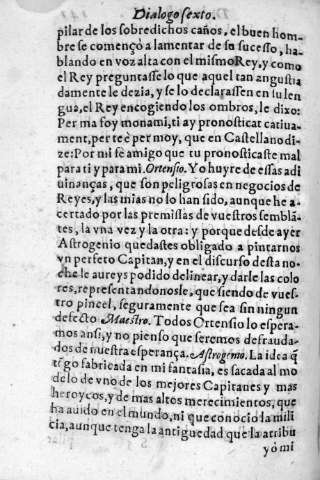 Dialogo sexto.
pilar de los sobredichos caños, el buen hom-
bre se començò a lamentar de su sucesso, ha-
blando en voz alta con el mismo Rey, y como
el Rey preguntasse lo que aquel tan angustia
damente le dezia, y se lo declarassen en su len
gua, el Rey encogiendo los ombros, le dixo:
Per ma foy monami, ti ay pronosticat catiua-
ment, per te è per moy, que en Castellano di-
ze: Por mi fè amigo que tu pronosticaste mal
para ti y para mi. Ortensio. Yo huyre de essas adi
uinanças, que son peligrosas en negocios de
Reyes, y las mias no lo han sido, aunque he a-
certado por las premissas de vuestros semblã-
tes, la vna vez y la otra: y porque desde ayer
Astrogenio quedastes obligado a pintarnos
vn perfeto Capitan, y en el discurso desta no-
che le aureys podido delinear, y darle las colo
res, representandonosle, que siendo de vues-
tro pincel, seguramente que sea sin ningun
defecto Maestro. Todos Ortensio lo espera-
mos ansi, y no pienso que seremos defrauda-
dos de nuestra esperança. Astrogenio. La idea q̃
tẽgo fabricada en mi fantasia, es sacada al mo
delo de vno de los mejores Capitanes y mas
heroycos, y de mas altos merecimientos, que
ha auido en el mundo, ni que conocio la mili
cia, aunque tenga la antiguedad que la atribu
yò mi